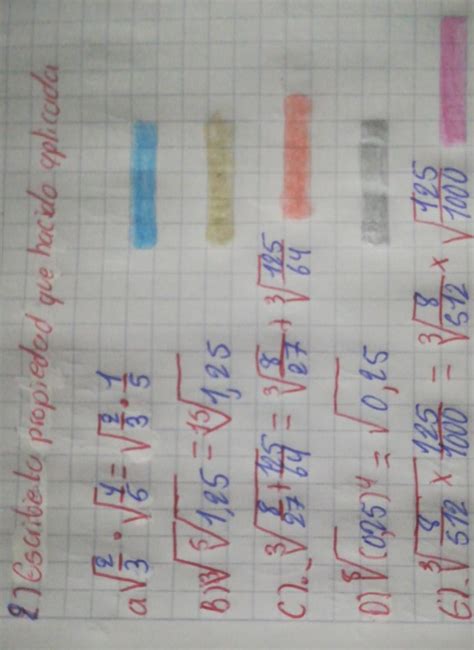 2) Escribe la propiedad que hacido aplicada
a √2/3 · √1/5 = √2/3 · 1/5
B) ³√⁵√1,25 = ¹⁵√1,25
C). ³√8/27 + 125/64 = ³√8/27 + ³√125/64
D) ⁸√(0,25)⁴ = √0,25
E). ³√8/512 × 125/1000 = ³√8/512 × √125/1000